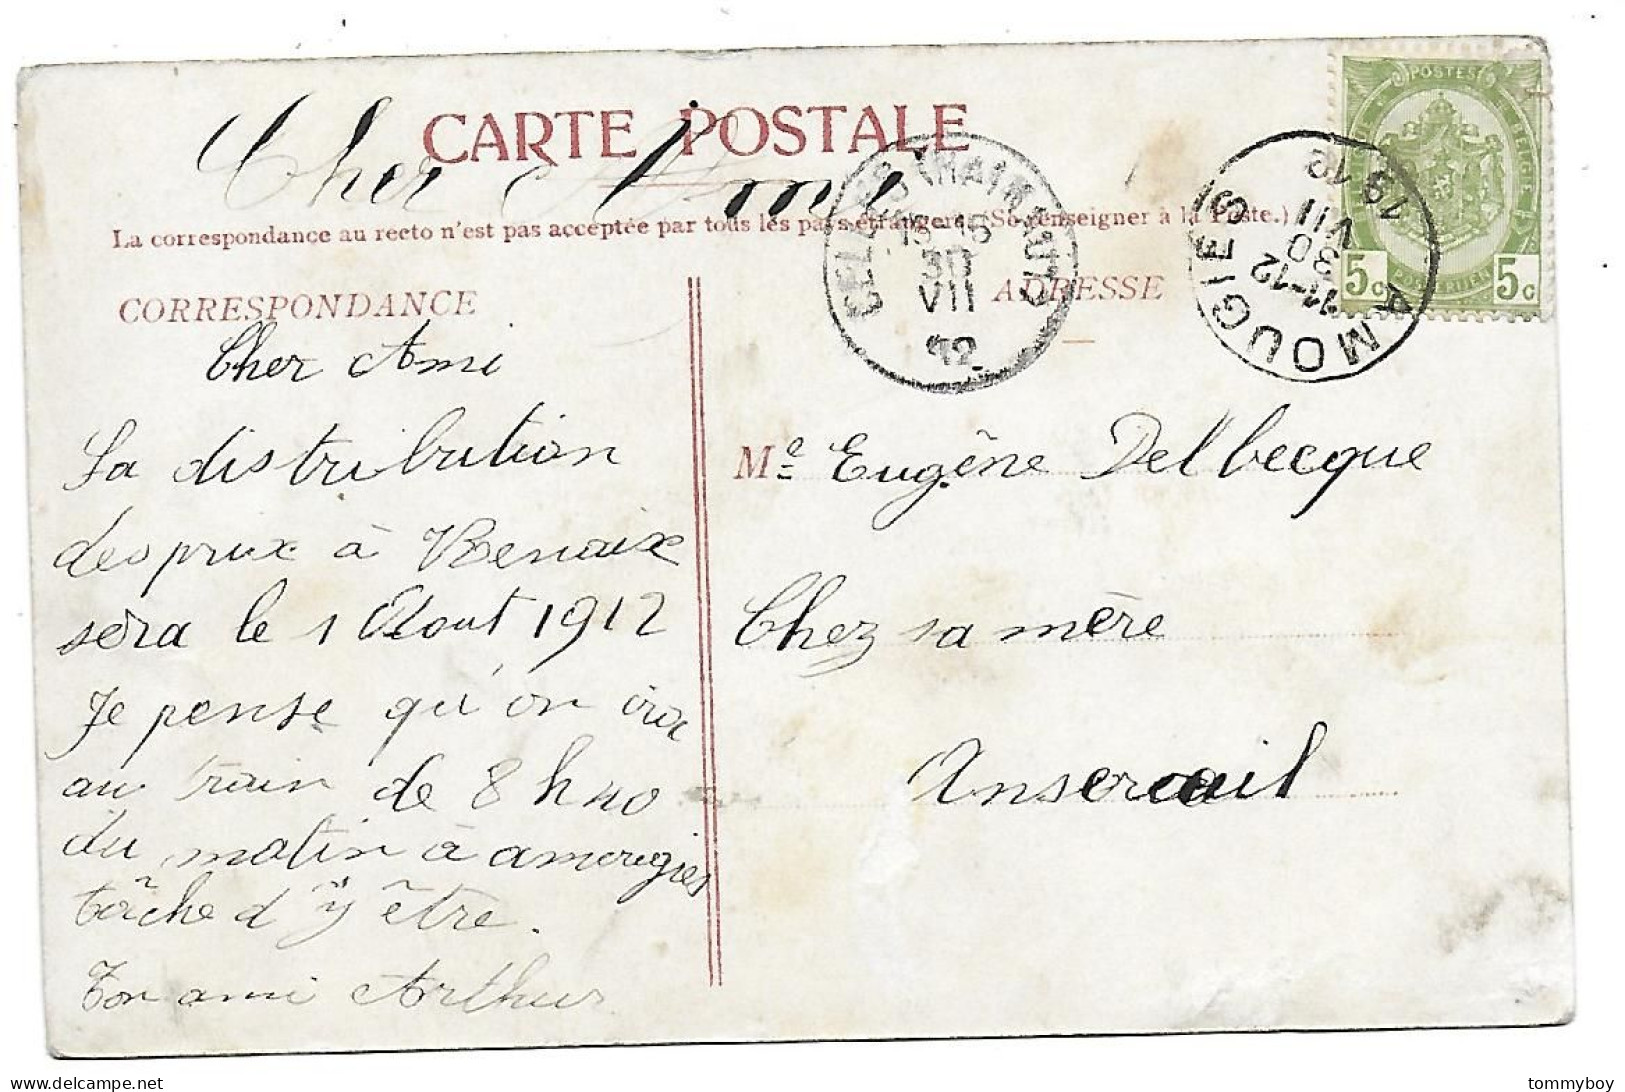 CARTE POSTALE
Cher Ami
La correspondance au recto n'est pas acceptée par tous les pays étrangers (Se renseigner à la Poste.)
CORRESPONDANCE
Cher Ami
La distribution
des prix à Renaix
sera le 1 Aout 1912
Je pense qu'on ira
au train de 8 h 40
du matin à amougies
tâche d'y être.
Ton ami Arthur
ADRESSE
Me Eugêne Delbecque
Chez sa mère
Anseroeuil
CELLES (HAINAUT)
15-16
30
VII
12
AMOUGIES
11-12
30
VII
1912
POSTES
BELGIQUE
BELGIË
POSTERIJEN
5c 5c
tommyboy